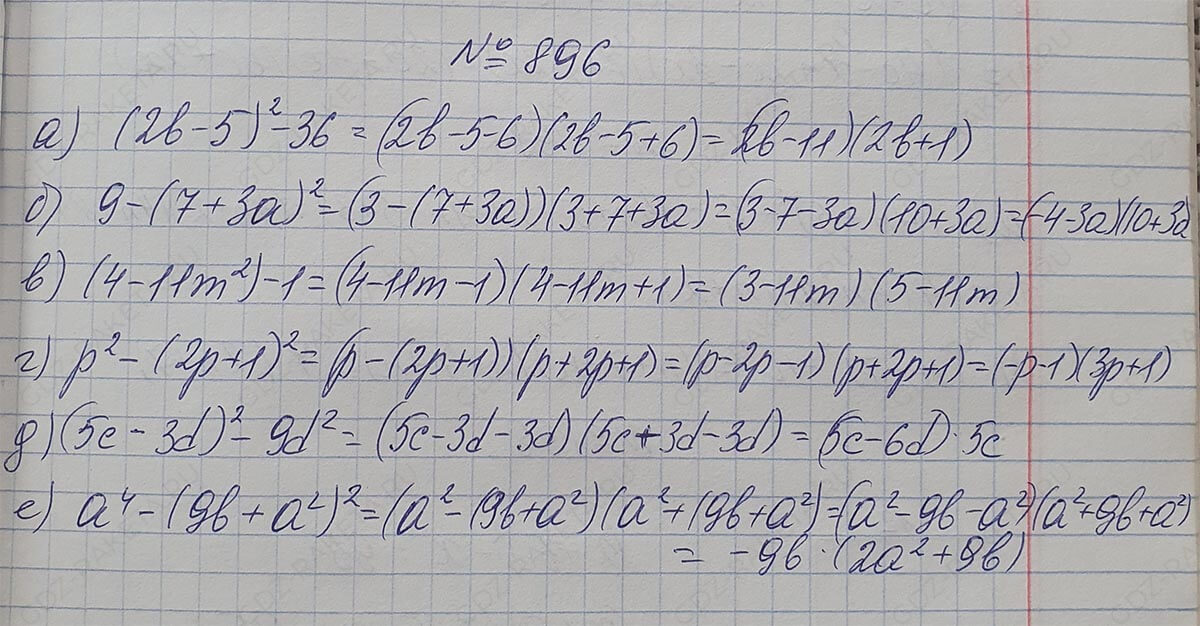 № 896
а) (2b-5)²-36 = (2b-5-6)(2b-5+6) = (2b-11)(2b+1)
б) 9-(7+3a)² = (3-(7+3a))(3+7+3a) = (3-7-3a)(10+3a) = (-4-3a)(10+3a)
в) (4-11m²)-1 = (4-11m-1)(4-11m+1) = (3-11m)(5-11m)
г) p²-(2p+1)² = (p-(2p+1))(p+2p+1) = (p-2p-1)(p+2p+1) = (-p-1)(3p+1)
д) (5c-3d)²-9d² = (5c-3d-3d)(5c+3d-3d) = (5c-6d)·5c
е) a⁴-(9b+a²)² = (a²-(9b+a²)(a²+(9b+a²) = (a²-9b-a²)(a²+9b+a²)
= -9b·(2a²+9b)